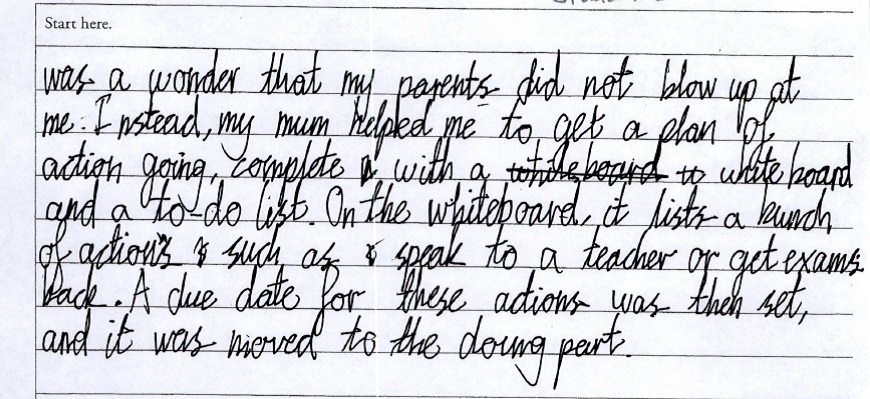 Start here.
was a wonder that my parents did not blow up at
me. Instead, my mum helped me to get a plan of
action going, complete with a whiteboard
and a to-do list. On the whiteboard, it lists a bunch
of actions such as speak to a teacher or get exams
back. A due date for these actions was then set,
and it was moved to the doing part.